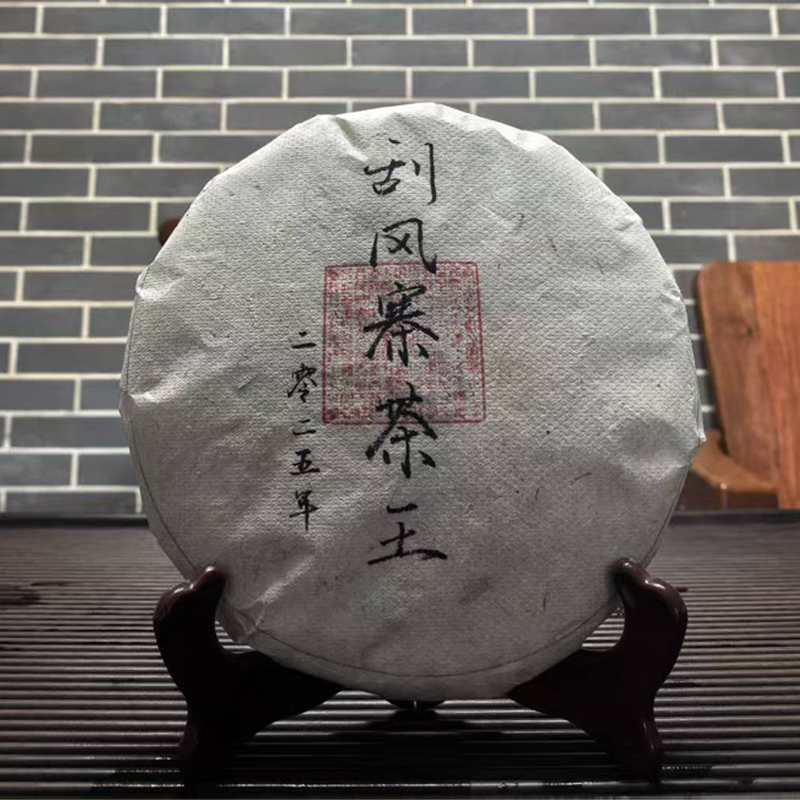 刮风寨茶王
二零二五年